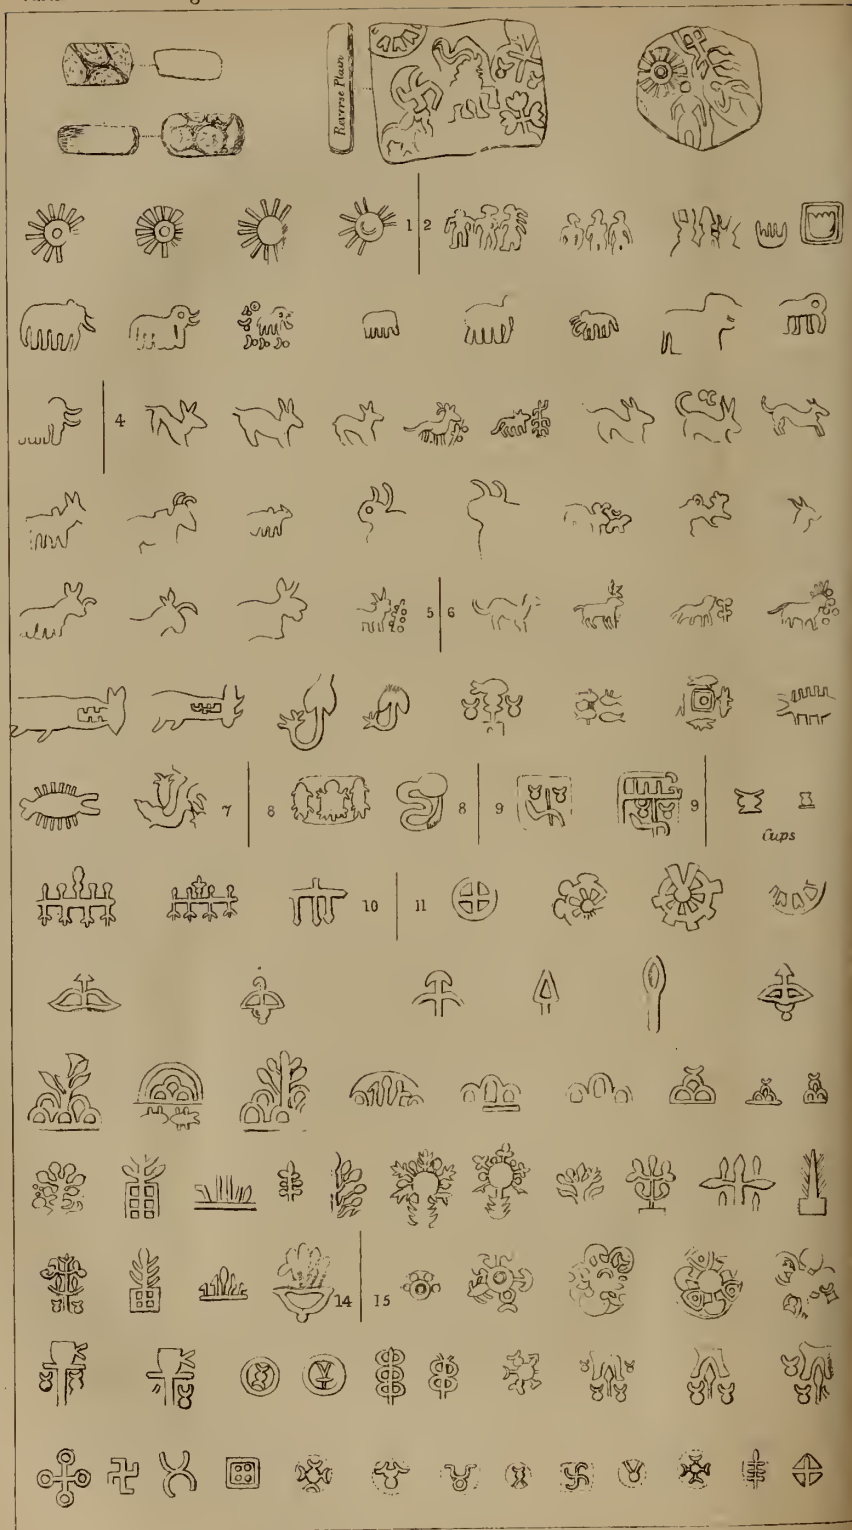 Reverse Plain
1 2
4
5 6
7 8 8 9 9
Cups
10 11
14 15